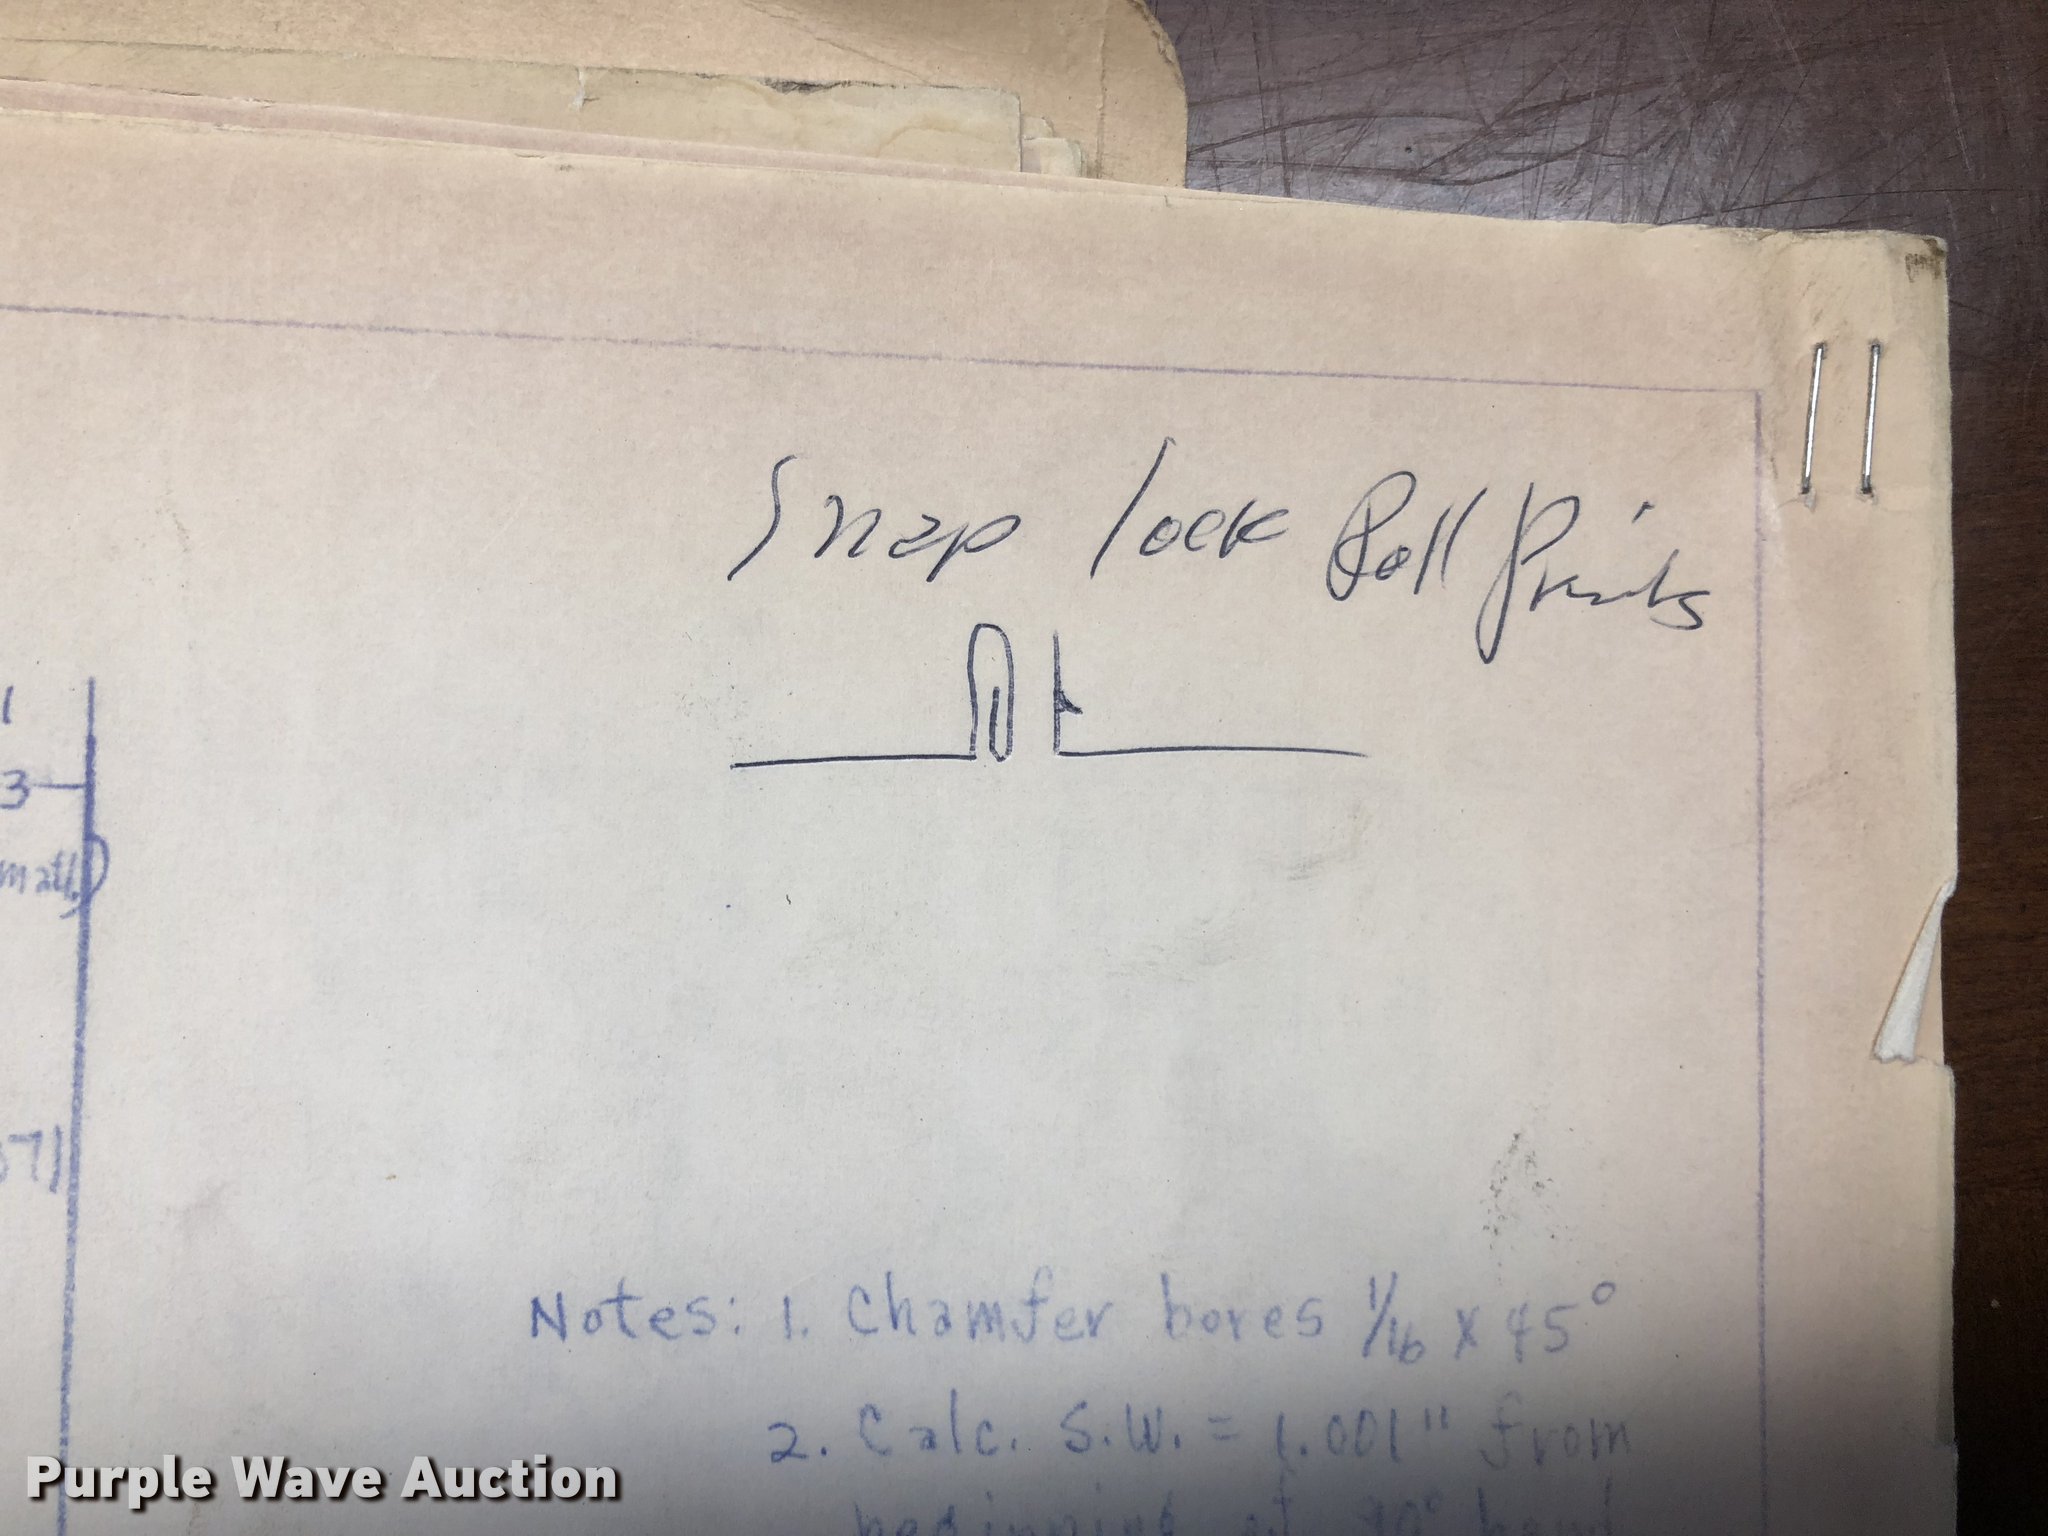 Snap lock Roll Prints
1
3
matl.)
071
Notes: 1. Chamfer bores 1/16 x 45°
2. Calc. S.W. = 1.001" from
beginning of 90° bend
Purple Wave Auction